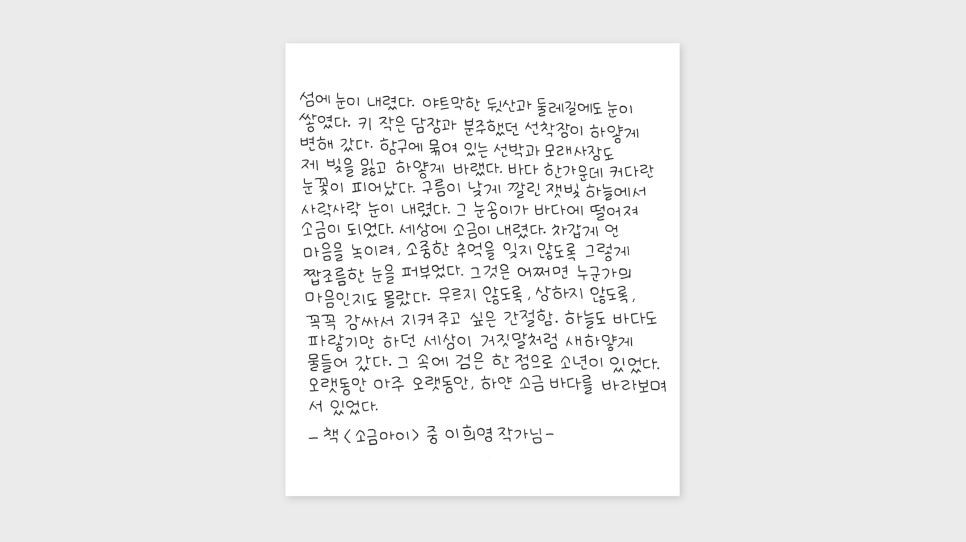 섬에 눈이 내렸다. 야트막한 뒷산과 둘레길에도 눈이
쌓였다. 키 작은 담장과 분주했던 선착장이 하얗게
변해 갔다. 항구에 묶여 있는 선박과 모래사장도
제 빛을 잃고 하얗게 바랬다. 바다 한가운데 커다란
눈꽃이 피어났다. 구름이 낮게 깔린 잿빛 하늘에서
사락사락 눈이 내렸다. 그 눈송이가 바다에 떨어져
소금이 되었다. 세상에 소금이 내렸다. 차갑게 언
마음을 녹이려, 소중한 추억을 잊지 않도록 그렇게
짭조름한 눈을 퍼부었다. 그것은 어쩌면 누군가의
마음인지도 몰랐다. 무르지 않도록, 상하지 않도록,
꼭꼭 감싸서 지켜 주고 싶은 간절함. 하늘도 바다도
파랗기만 하던 세상이 거짓말처럼 새하얗게
물들어 갔다. 그 속에 검은 한 점으로 소년이 있었다.
오랫동안 아주 오랫동안, 하얀 소금 바다를 바라보며
서 있었다.
- 책 <소금아이> 중 이희영 작가님 -